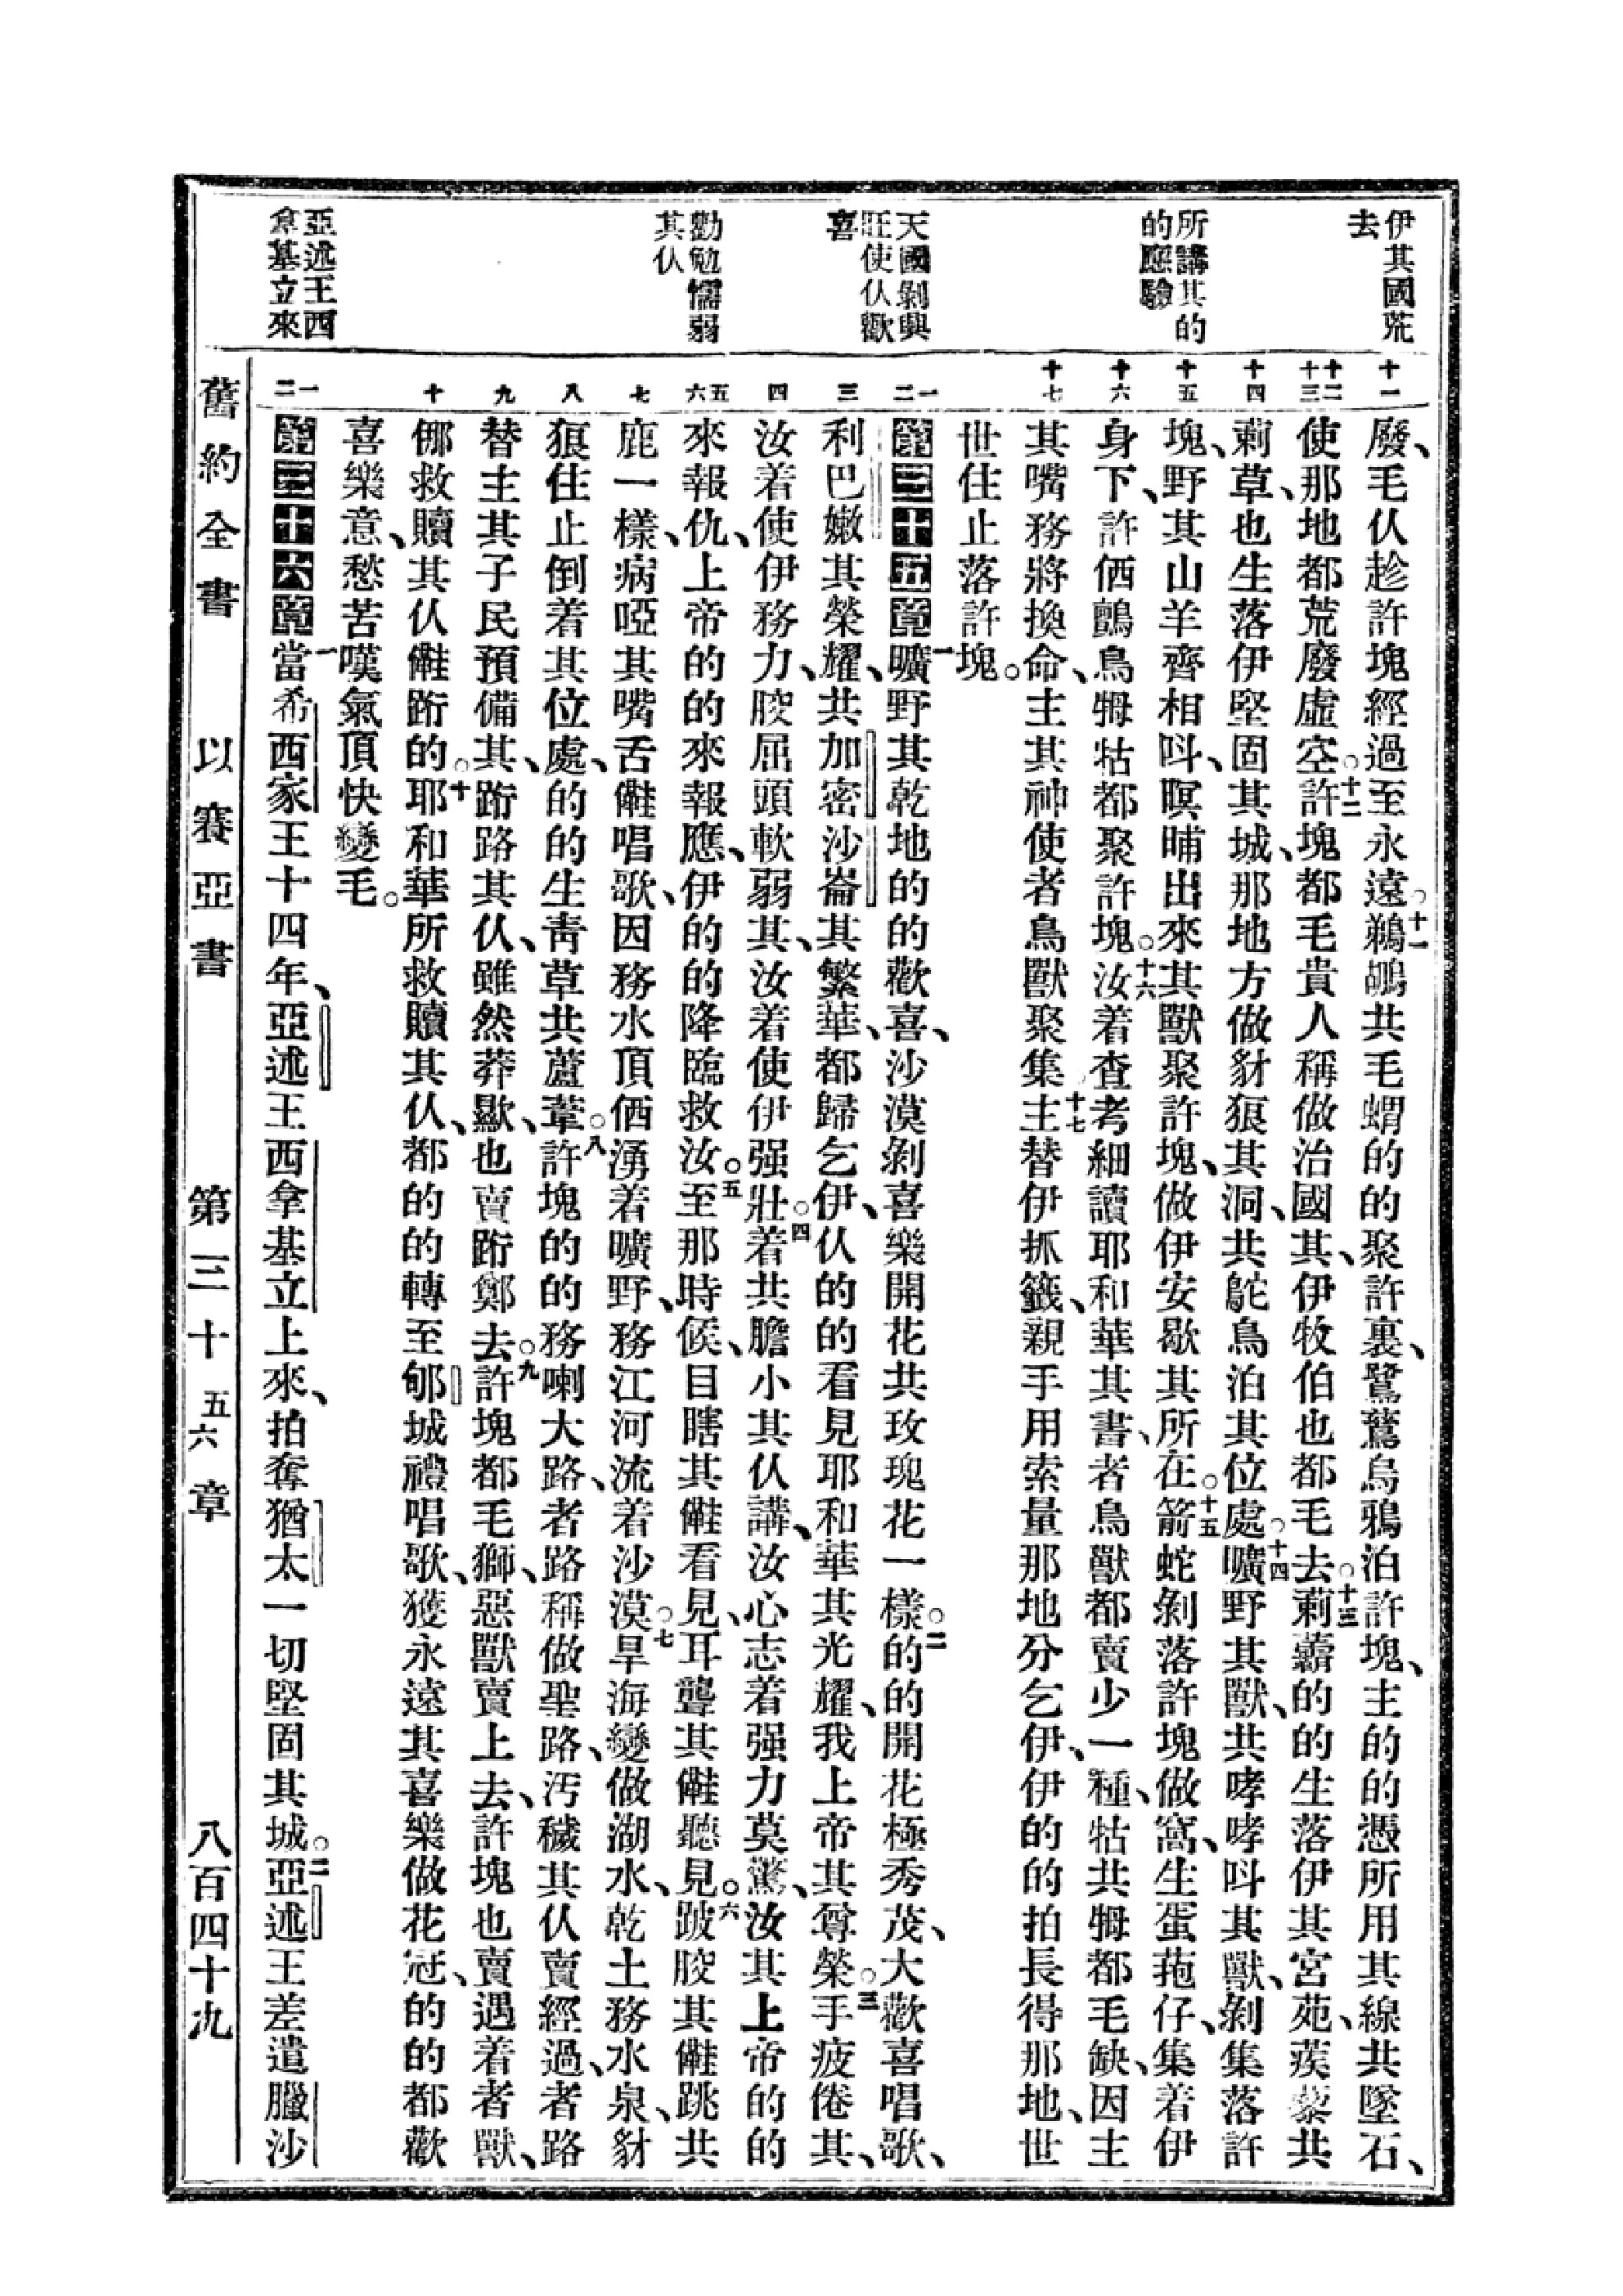 伊其國荒
去
所講其的
的應驗
天國剝興
旺使仈歡
喜
勸勉懦弱
其仈
亞述王西
拿基立來
十一
十二
十三
十四
十五
十六
十七
一
二
三
四
五
六
七
八
九
十
一
二
廢、毛仈趁許塊經過至永遠。十一鵜鶘共毛蝟的的聚許裏、鷺鷥烏鴉泊許塊、主的的憑所用其線共墜石、
使那地都荒廢虛空。十二許塊都毛貴人稱做治國其、伊牧伯也都毛去。十三莿藬的的生落伊其宮苑、蒺藜共
莿草、也生落伊堅固其城、那地方做豺狼其洞、共鴕鳥泊其位處。十四曠野其獸、共哮哮呌其獸、剝集落許
塊、野其山羊齊相呌、暝晡出來其獸聚許塊、做伊安歇其所在。十五箭蛇剝落許塊做窩、生蛋菢仔、集着伊
身下、許仜鸇鳥㹇牯都聚許塊。十六汝着查考細讀耶和華其書、者鳥獸都賣少一種、牯共㹇都毛缺、因主
其嘴務將換命、主其神使者鳥獸聚集、十七主替伊抓籤、親手用索量那地分乞伊、伊的的拍長得那地、世
世住止落許塊。
第三十五章一曠野其乾地的的歡喜、沙漠剝喜樂開花共玫瑰花一樣。二的的開花極秀茂、大歡喜唱歌、
利巴嫩其榮耀、共加密沙崙其繁華、都歸乞伊、仈的的看見耶和華其光耀、我上帝其尊榮。三手疲倦其、
汝着使伊務力、骹屈頭軟弱其、汝着使伊强壯。四着共膽小其仈講、汝心志着强力莫驚、汝其上帝的的
來報仇、上帝的的來報應、伊的的降臨救汝。五至那時候、目瞎其㑚看見、耳聾其㑚聽見。六跛骹其㑚跳共
鹿一樣、病啞其嘴舌㑚唱歌、因務水頂仜湧着曠野、務江河流着沙漠。七旱海變做湖水、乾土務水泉、豺
狼住止倒着其位處、的的生靑草共蘆葦。八許塊的的務喇大路、者路稱做聖路、汚穢其仈賣經過、者路
替主其子民預備其、跲路其仈、雖然莽歇、也賣跲鄭去。九許塊都毛獅、惡獸賣上去、許塊也賣遇着者獸、
㑚救贖其仈㑚跲的。十耶和華所救贖其仈、都的的轉至郇城禮唱歌、獲永遠其喜樂做花冠、的的都歡
喜樂意、愁苦嘆氣頂快變毛。
第三十六章一當希西家王十四年、亞述王西拿基立上來、拍奪猶太一切堅固其城。二亞述王差遣臘沙
舊約全書　以賽亞書　第三十五六章　八百四十九